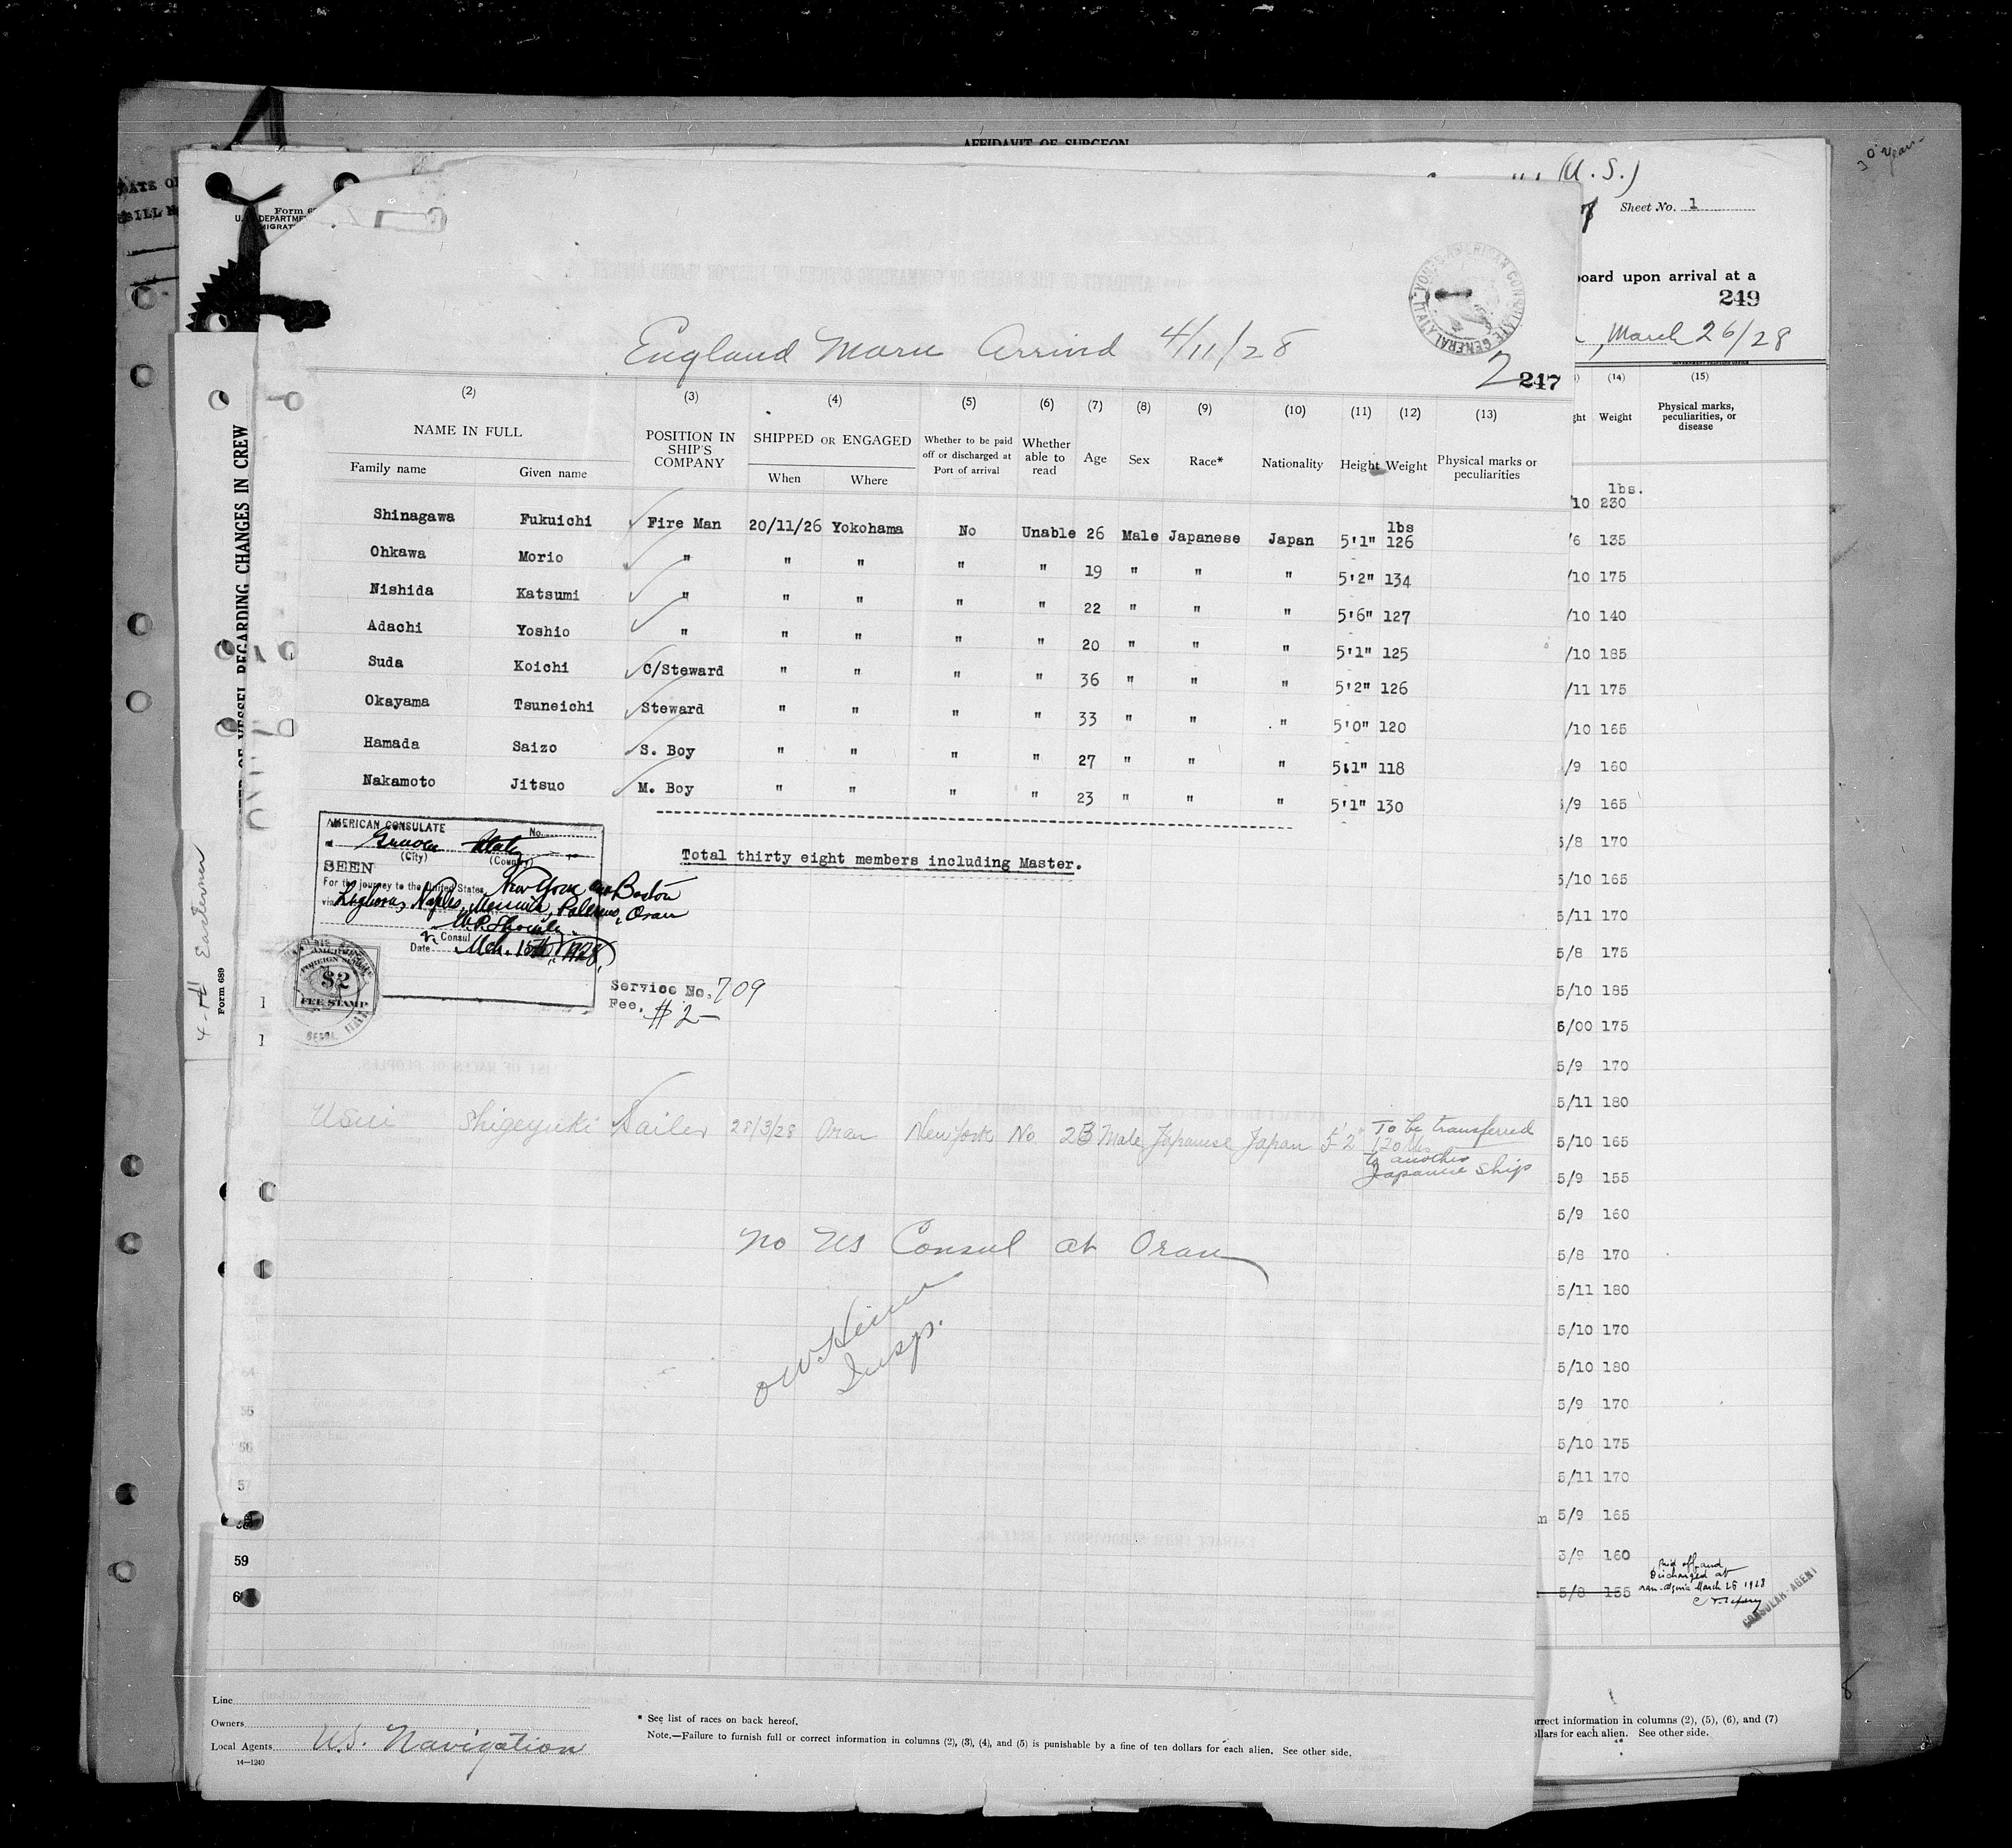 AFFIDAVIT OF SURGEON
30 years
(U.S.)
Sheet No. 1
Form 6
U. DEPARTMEN
MIGRAT
board upon arrival at a
249
, March 26/28
England Maru Arrived 4/11/28
AMERICAN CONSULATE GENERAL ITALY
2
247
(2) (3) (4) (5) (6) (7) (8) (9) (10) (11) (12) (13)
NAME IN FULL
Family name Given name
POSITION IN SHIP'S COMPANY
SHIPPED OR ENGAGED
When Where
Whether to be paid off or discharged at Port of arrival
Whether able to read
Age Sex Race* Nationality Height Weight
Physical marks or peculiarities
Shinagawa Fukuichi Fire Man 20/11/26 Yokohama No Unable 26 Male Japanese Japan 5'1" 126 lbs
Ohkawa Morio " " " " " 19 " " " 5'2" 134
Nishida Katsumi " " " " " 22 " " " 5'6" 127
Adachi Yoshio " " " " " 20 " " " 5'1" 125
Suda Koichi C/Steward " " " " 36 " " " 5'2" 126
Okayama Tsuneichi Steward " " " " 33 " " " 5'0" 120
Hamada Saizo S. Boy " " " " 27 " " " 5'1" 118
Nakamoto Jitsuo M. Boy " " " " 23 " " " 5'1" 130
Total thirty eight members including Master.
AMERICAN CONSULATE No.
Genoa Italy
(City) (Country)
SEEN
For the journey to the United States, New York and Boston
via Leghorn, Naples, Messina, Palermo, Oran
Consul
Date Mch. 15th, 1928
AMERICAN
FOREIGN SERVICE
$2
FEE STAMP
Service No. 709
Fee. $2—
Usui Shigeyuki Sailor 28/3/28 Oran New York No 23 Male Japanese Japan 5'2" 120 lbs
To be transferred
to another
Japanese ship
No US Consul at Oran
Insp.
55
56
57
59
Line
Owners
Local Agents U.S. Navigation
14—1240
* See list of races on back hereof.
Note.—Failure to furnish full or correct information in columns (2), (3), (4), and (5) is punishable by a fine of ten dollars for each alien. See other side.
REGARDING CHANGES IN CREW
4-H Easterner
Form 689
(14) (15)
Weight
Physical marks, peculiarities, or disease
lbs.
/10 230
/6 135
/10 175
/10 140
/10 185
/11 175
/10 165
/9 160
/9 165
5/8 170
5/10 165
5/11 170
5/8 175
5/10 185
6/00 175
5/9 170
5/11 180
5/10 165
5/9 155
5/9 160
5/8 170
5/11 180
5/10 170
5/10 180
5/9 170
5/10 175
5/11 170
5/9 165
5/9 160
5/8 155
Paid off and
Discharged at
March 26 1928
CONSULAR AGENT
rrect information in columns (2), (5), (6), and (7)
ollars for each alien. See other side.